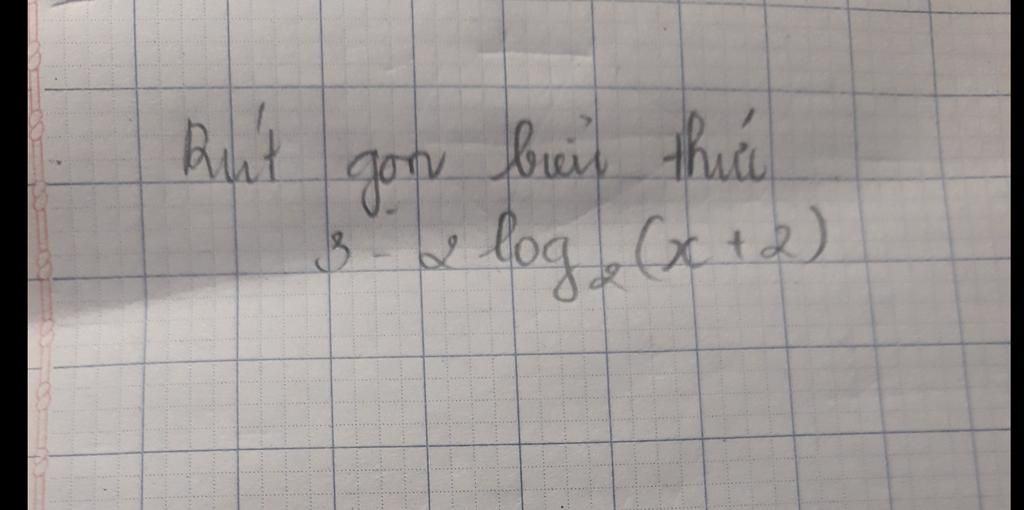 Rút gọn biểu thức
3 - 2 log₂ (x + 2)